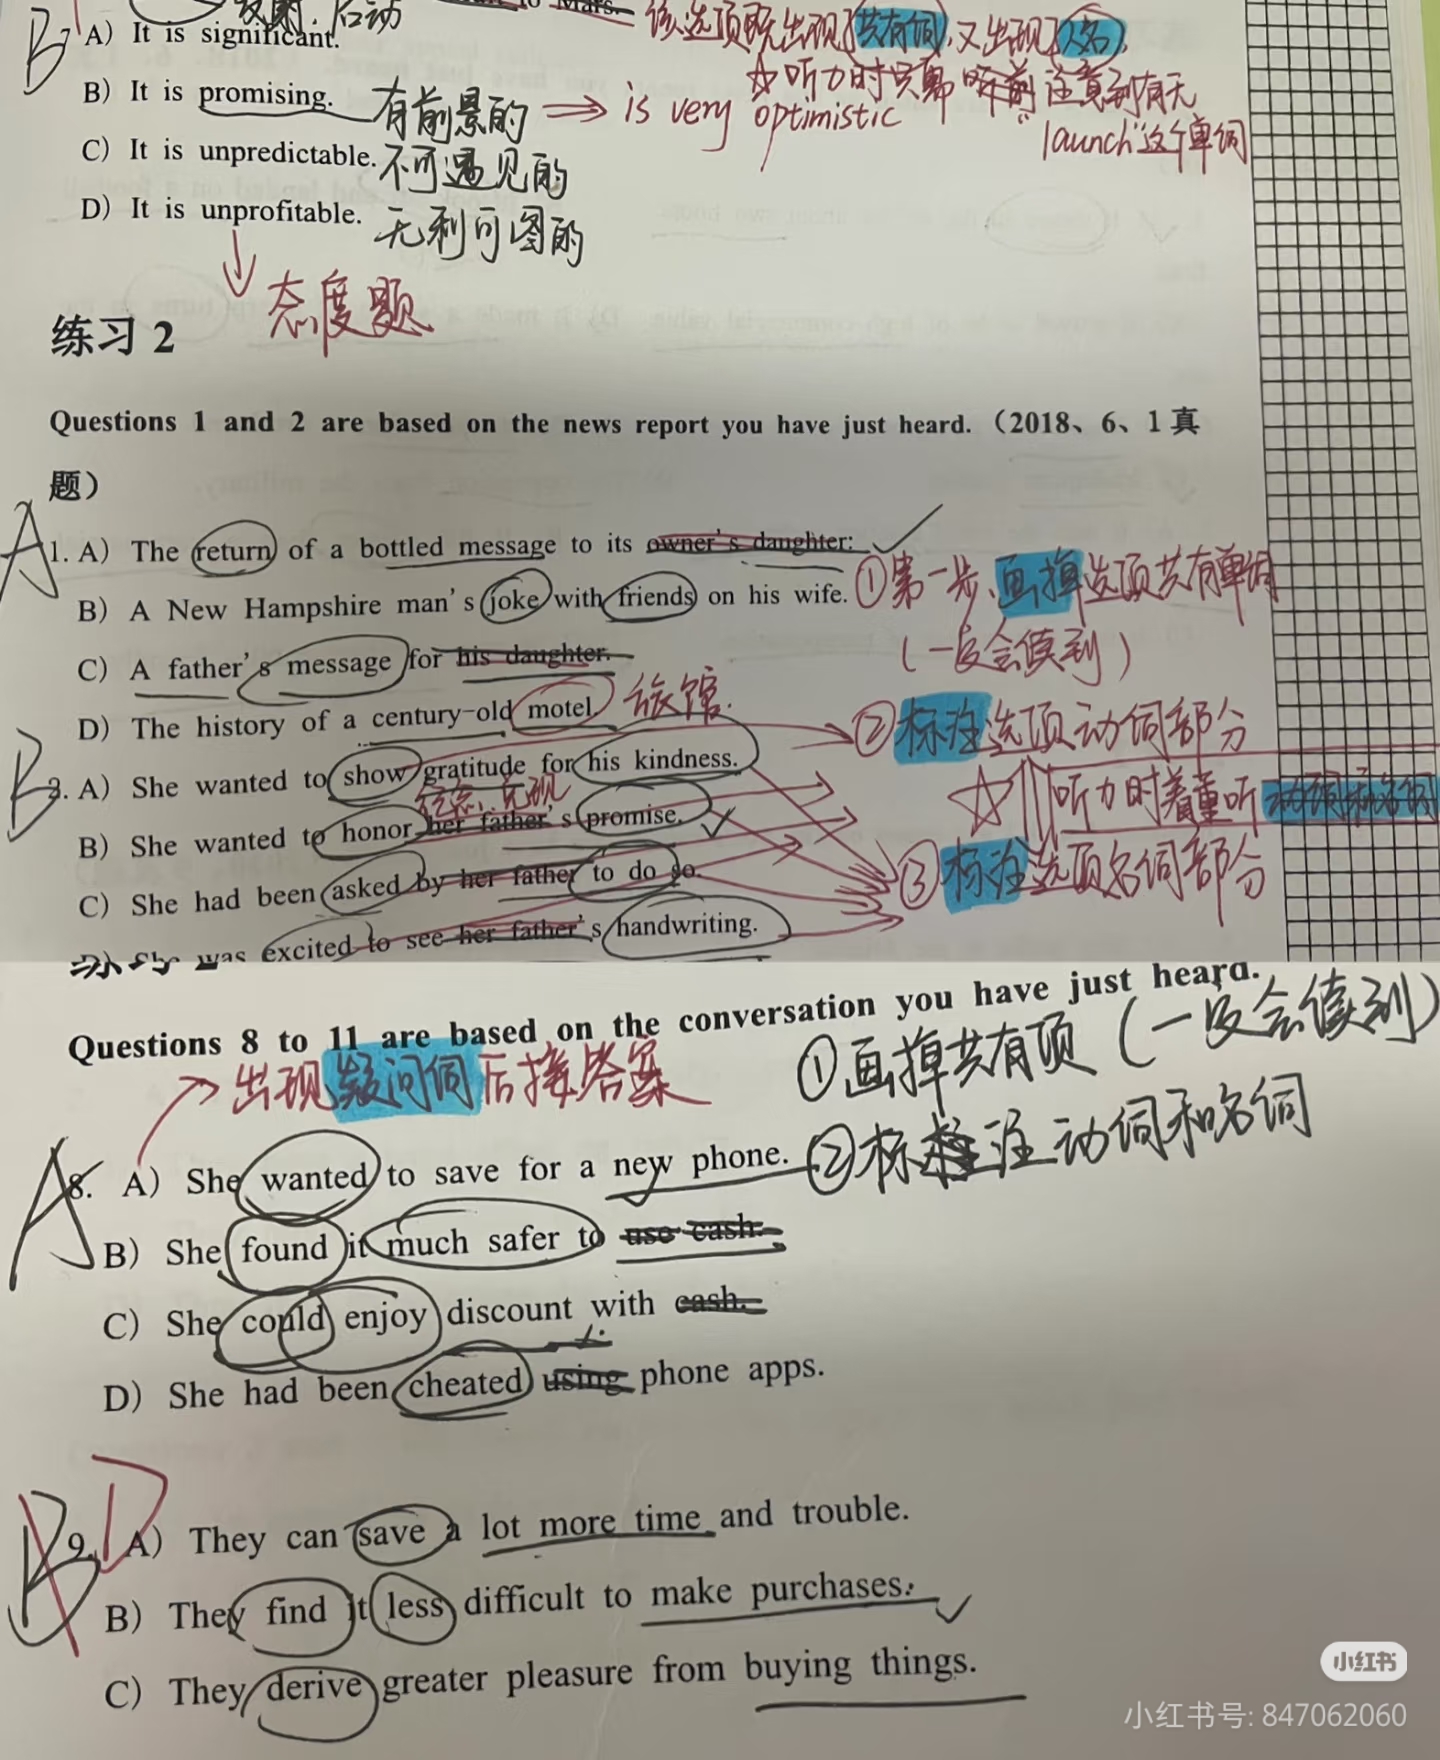 发射, 启动
to Mars.
该选项既出现了共有词,又出现了人名,
B
A) It is significant.
☆听力时只需听前 注意到有无
"launch"这个单词
B) It is promising. 有前景的 → is very optimistic
C) It is unpredictable. 不可遇见的
D) It is unprofitable. 无利可图的
态度题
练习 2
Questions 1 and 2 are based on the news report you have just heard.(2018、6、1 真
题)
A
1. A) The return of a bottled message to its owner's daughter:
①第一步、画掉选项共有单词
B) A New Hampshire man's joke with friends on his wife.
(一定会读到)
C) A father's message for his daughter.
D) The history of a century-old motel. 旅馆.
②标注选项动词部分
B
2. A) She wanted to show gratitude for his kindness.
☆听力时着重听动词和名词
B) She wanted to honor her father's promise.
③标注选项名词部分
C) She had been asked by her father to do so.
D) She was excited to see her father's handwriting.
Questions 8 to 11 are based on the conversation you have just heard.
出现疑问词后接答案
①画掉共有项(一定会读到)
②标注动词和名词
A
8. A) She wanted to save for a new phone.
B) She found it much safer to use cash.
C) She could enjoy discount with cash.
D) She had been cheated using phone apps.
B D
9. A) They can save a lot more time and trouble.
B) They find it less difficult to make purchases.
C) They derive greater pleasure from buying things.
小红书
小红书号: 847062060